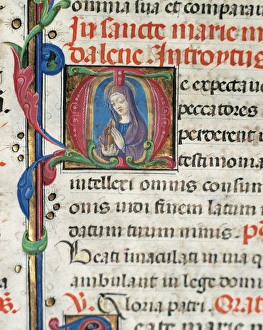 omnia sua et comparau
In sancte marie m
dalene Introytus
Me expectaue
peccatores
perderent
testimonia
intellexi omnis consum
onis uidi finem latum
datum tuum nimis. p
Beati immaculati in uia q
ambulant in lege domi
V. Gloria patri. Orat
Beate marie